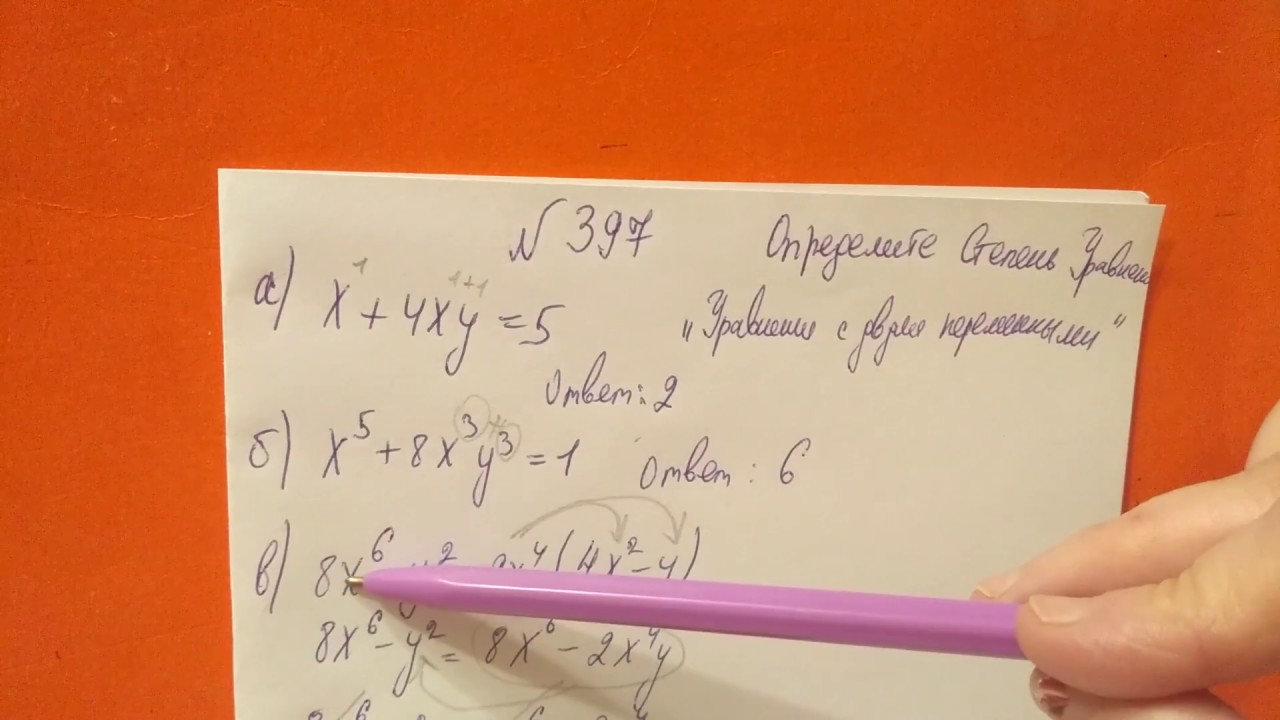 № 397 Определите Степень Уравнен
"Уравнения с двумя переменными"
а) x¹ + 4xy¹⁺¹ = 5
Ответ: 2
б) x⁵ + 8x³y³ = 1 Ответ: 6
в) 8x⁶ y² 2x⁴(4x² - y)
8x⁶ - y² = 8x⁶ - 2x⁴y